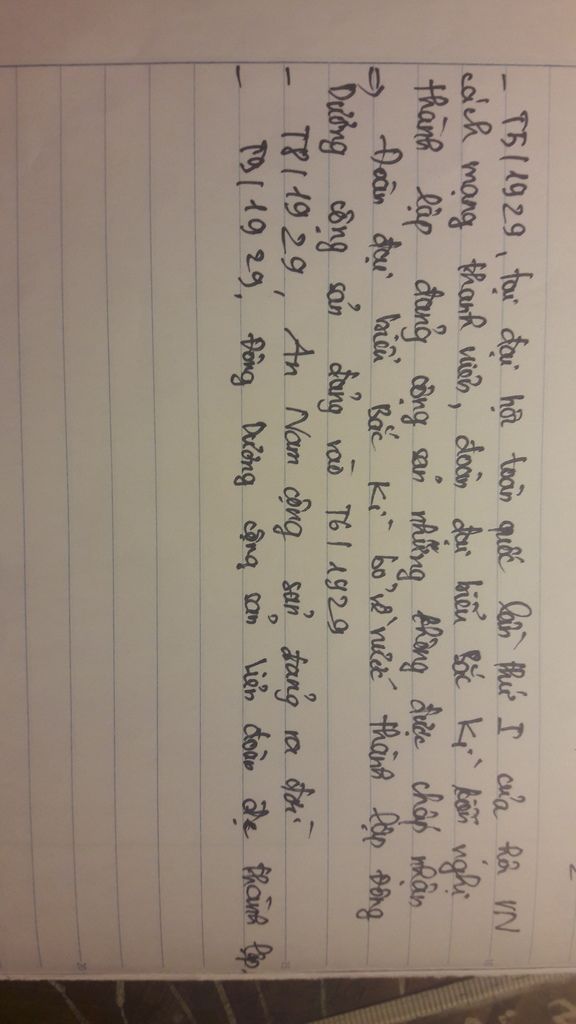 - T5/1929, tại đại hội toàn quốc lần thứ I của hội VN
cách mạng thanh niên, đoàn đại biểu Bắc Kì kiến nghị
thành lập đảng cộng sản nhưng không được chấp nhận
=> Đoàn đại biểu Bắc Kì bỏ về nước thành lập Đông
Dương cộng sản đảng vào T6/1929
- T8/1929, An Nam cộng sản đảng ra đời
- T9/1929, Đông Dương cộng sản liên đoàn đc thành lập.